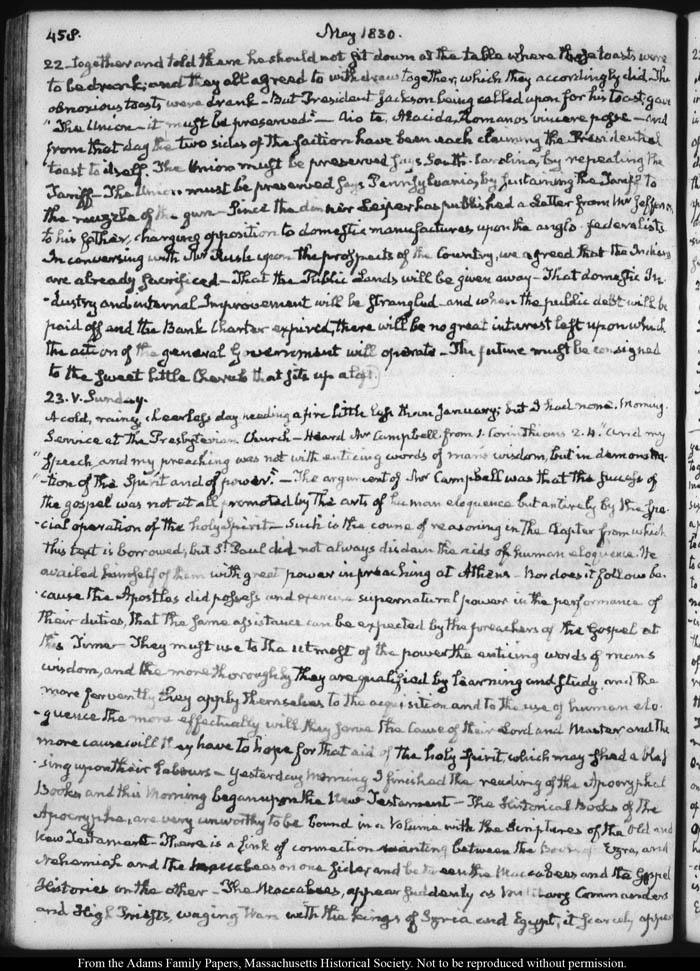 458.
May 1830.
22 - together and told them he should not sit down at the table where those toasts were
to be drank; and they all agreed to withdraw together, which they accordingly did. The
obnoxious toasts were drank - But President Jackson being called upon for his toast, gave
"The Union - it must be preserved" - Aio te, Æacida, Romanos vincere posse - and
from that day the two sides of the faction have been each claiming the Presidential
toast to itself. The Union must be preserved says South-Carolina, by repealing the
Tariff - The Union must be preserved says Pennsylvania, by sustaining the Tariff to
the muzzle of the gun - Since the dinner Leiper has published a Letter from Mr Jefferson,
to his father, charging opposition to domestic manufactures upon the anglo-federalists.
In conversing with Mr Rush upon the prospects of the Country, we agreed that the Indians
are already sacrificed - That the Public Lands will be given away - That domestic In-
-dustry and internal Improvement will be strangled - and when the public debt will be
paid off and the Bank Charter expired, there will be no great interest left upon which
the action of the general Government will operate - The future must be consigned
to the sweet little Cherub that sits up aloft.
23. V. Sunday.
A cold, rainy, cheerless day needing a fire little less than January; but I had none. Morning
Service at the Presbyterian Church - Heard Mr Campbell from 1. Corinthians 2.4. "And my
"Speech and my preaching was not with enticing words of mans wisdom, but in demonstra-
"-tion of the Spirit and of power." - The argument of Mr Campbell was that the success of
the gospel was not at all promoted by the arts of human eloquence but entirely by the spe-
-cial operation of the holy Spirit - Such is the course of reasoning in the Chapter from which
this text is borrowed; but St. Paul did not always disdain the aids of human eloquence. He
availed himself of them with great power in preaching at Athens - Nor does it follow be-
-cause the Apostles did possess and exercise supernatural power in the performance of
their duties, that the same assistance can be expected by the preachers of the Gospel at
this Time - They must use to the utmost of the power the enticing words of mans
wisdom, and the more thoroughly they are qualified by learning and study, and the
more fervently they apply themselves to the acquisition and to the use of human elo-
-quence the more effectually will they serve the Cause of their Lord and Master and the
more cause will they have to hope for that aid of the holy Spirit, which may shed a bles-
-sing upon their labours - Yesterday Morning I finished the reading of the Apocryphal
Books and this Morning began upon the New Testament - The Historical Books of the
Apocrypha, are very unworthy to be bound in a Volume with the Scriptures of the Old and
New Testament - There is a link of connection wanting between the Books of Ezra, and
Nehemiah and the Maccabees on one side, and between the Maccabees and the Gospel
Histories on the other - The Maccabees, appear suddenly as Military Commanders
and High Priests, waging War with the kings of Syria and Egypt, it scarcely appears
From the Adams Family Papers, Massachusetts Historical Society. Not to be reproduced without permission.